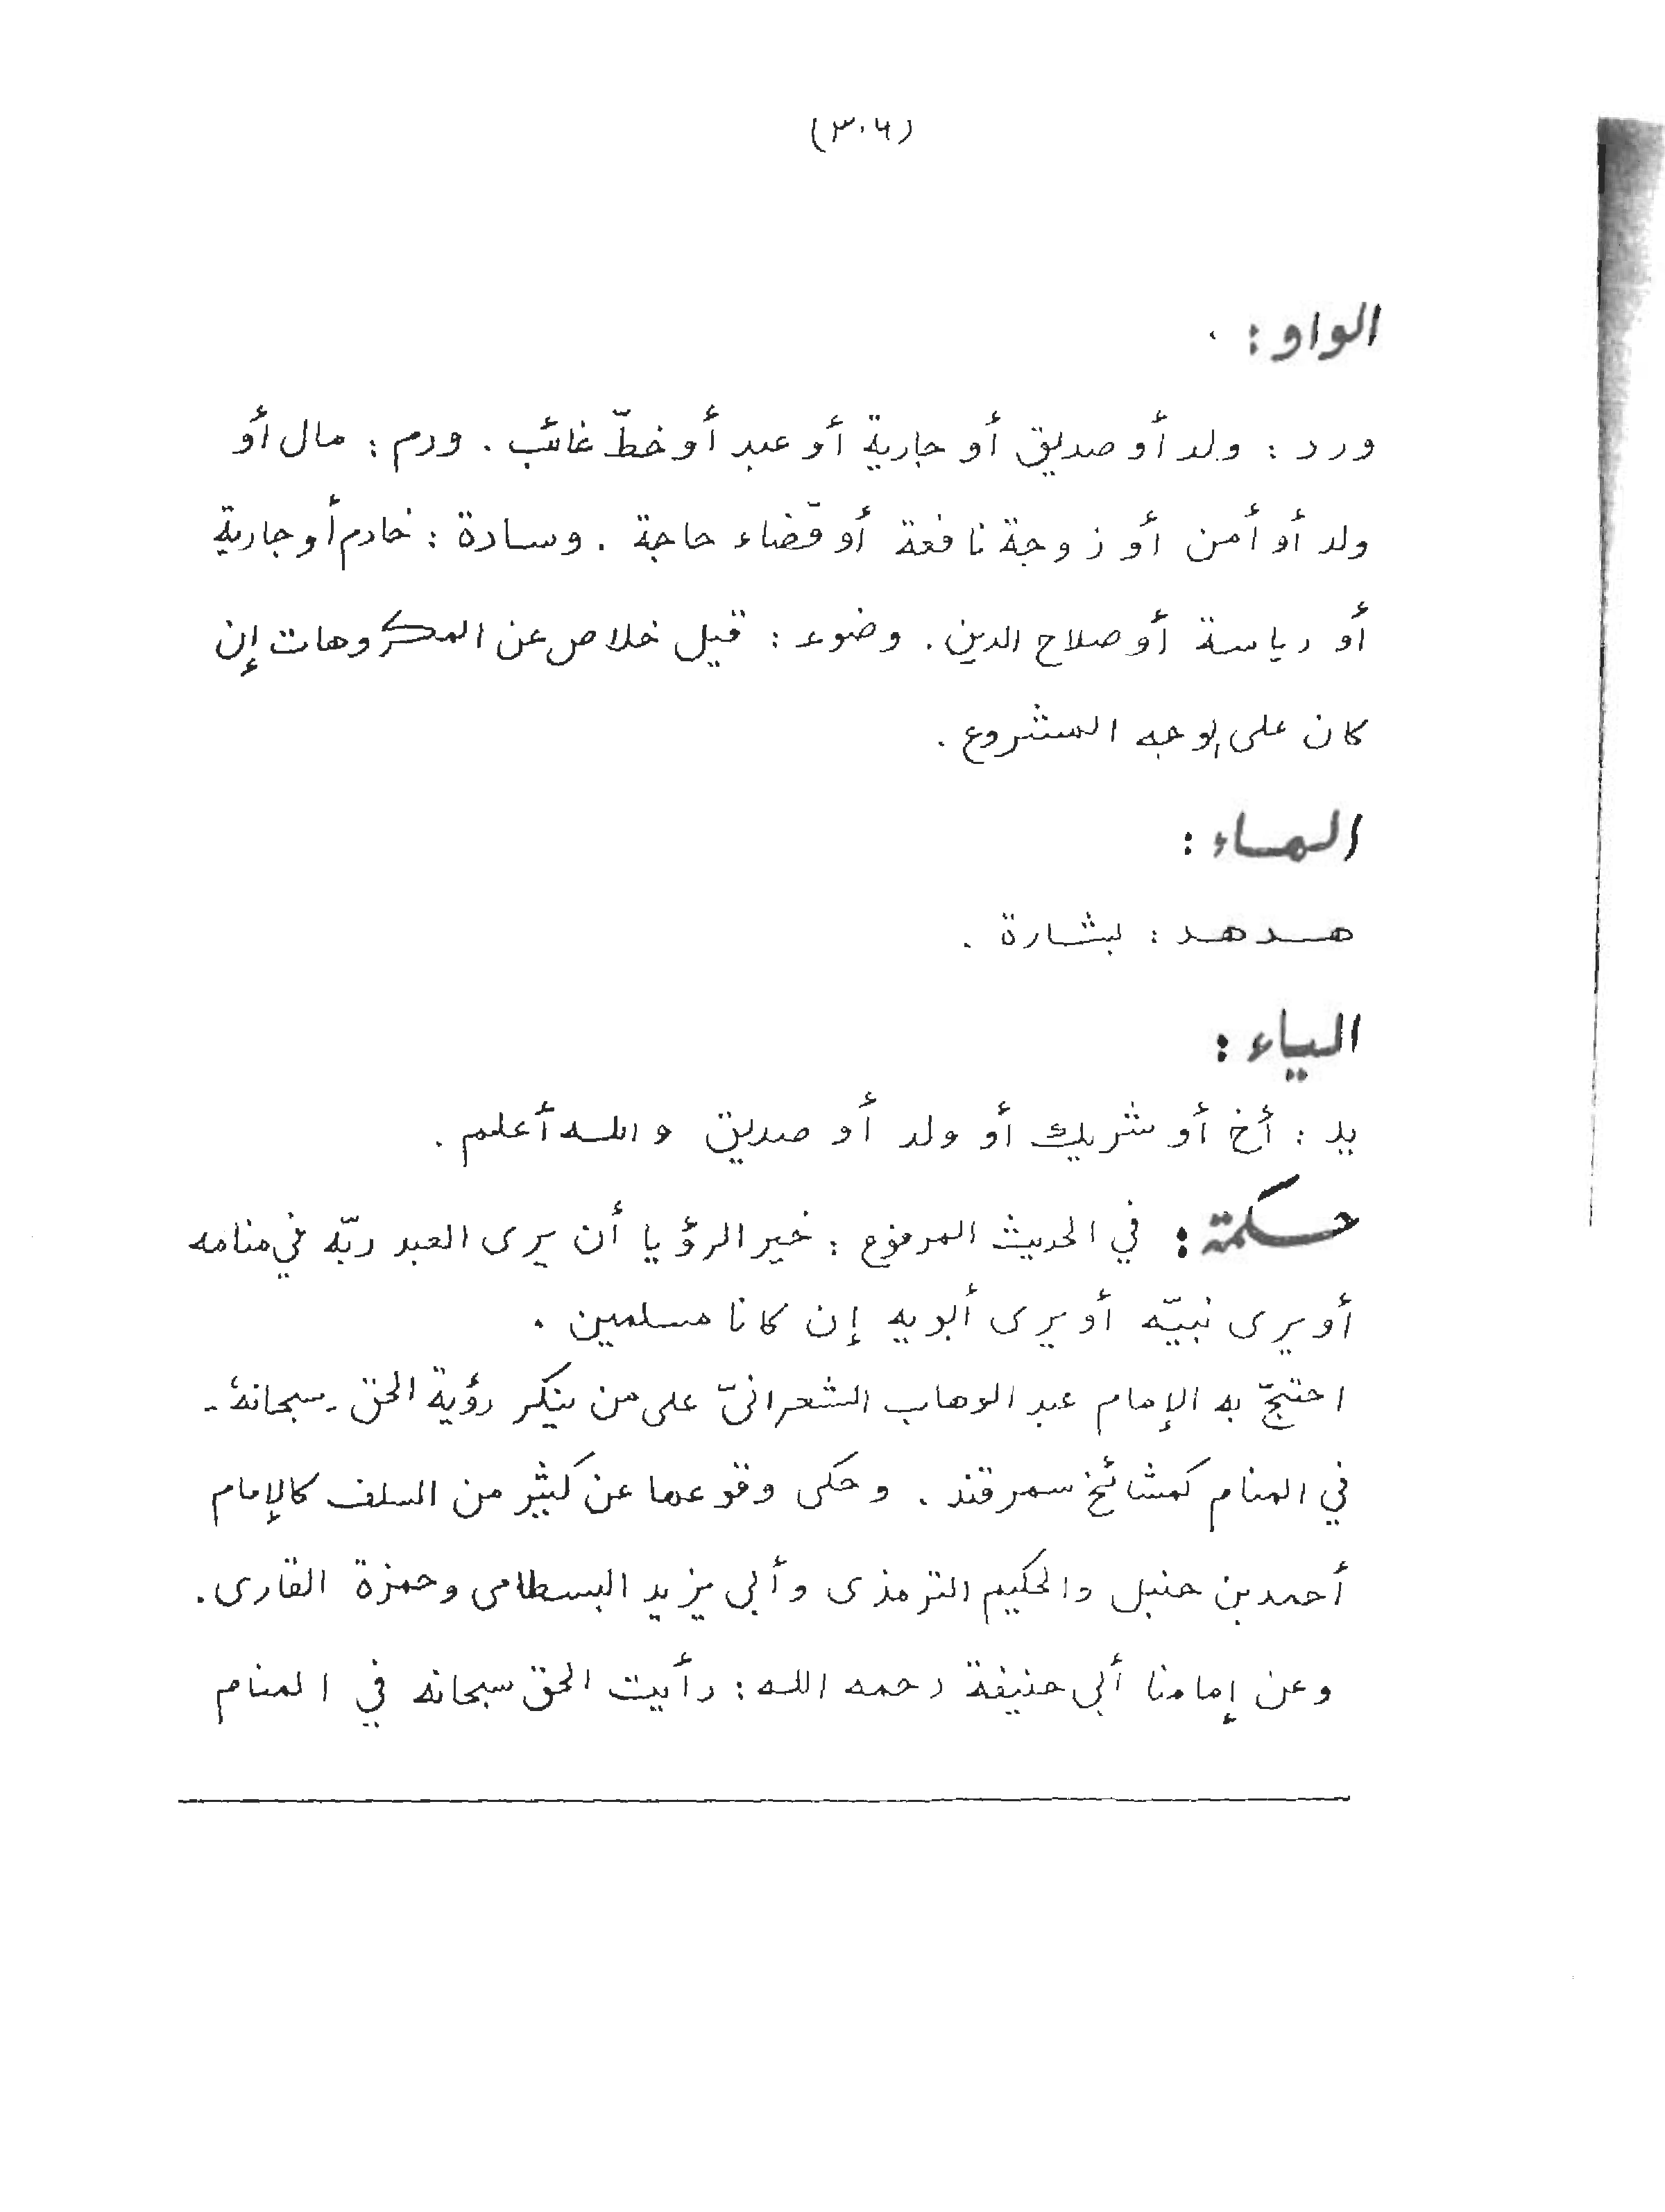 (٣٠٦)
الواو :
ورد : ولد أو صديق أو جارية أو عبد أو خطّ غائب . ورم : مال أو
ولد أو أمن أو زوجة نافعة أو قضاء حاجة . وسادة : خادم أو جارية
أو رياسة أو صلاح الدين . وضوء : قيل خلاص عن المكروهات إن
كان على الوجه المشروع .
الهاء :
هدهد : بشارة .
الياء :
يد : أخ أو شريك أو ولد أو صديق والله أعلم .
حكمة : في الحديث المرفوع : خير الرؤيا أن يرى العبد ربّه في منامه
أو يرى نبيّه أو يرى أبويه إن كانا مسلمين .
احتجّ به الإمام عبد الوهاب الشعرانىّ على من ينكر رؤية الحق - سبحانه -
في المنام كمشائخ سمرقند . وحكى وقوعها عن كثير من السلف كالإمام
أحمد بن حنبل والحكيم الترمذى وأبي يزيد البسطامى وحمزة القارى .
وعن إمامنا أبى حنيفة رحمه الله : رأيت الحق سبحانه في المنام